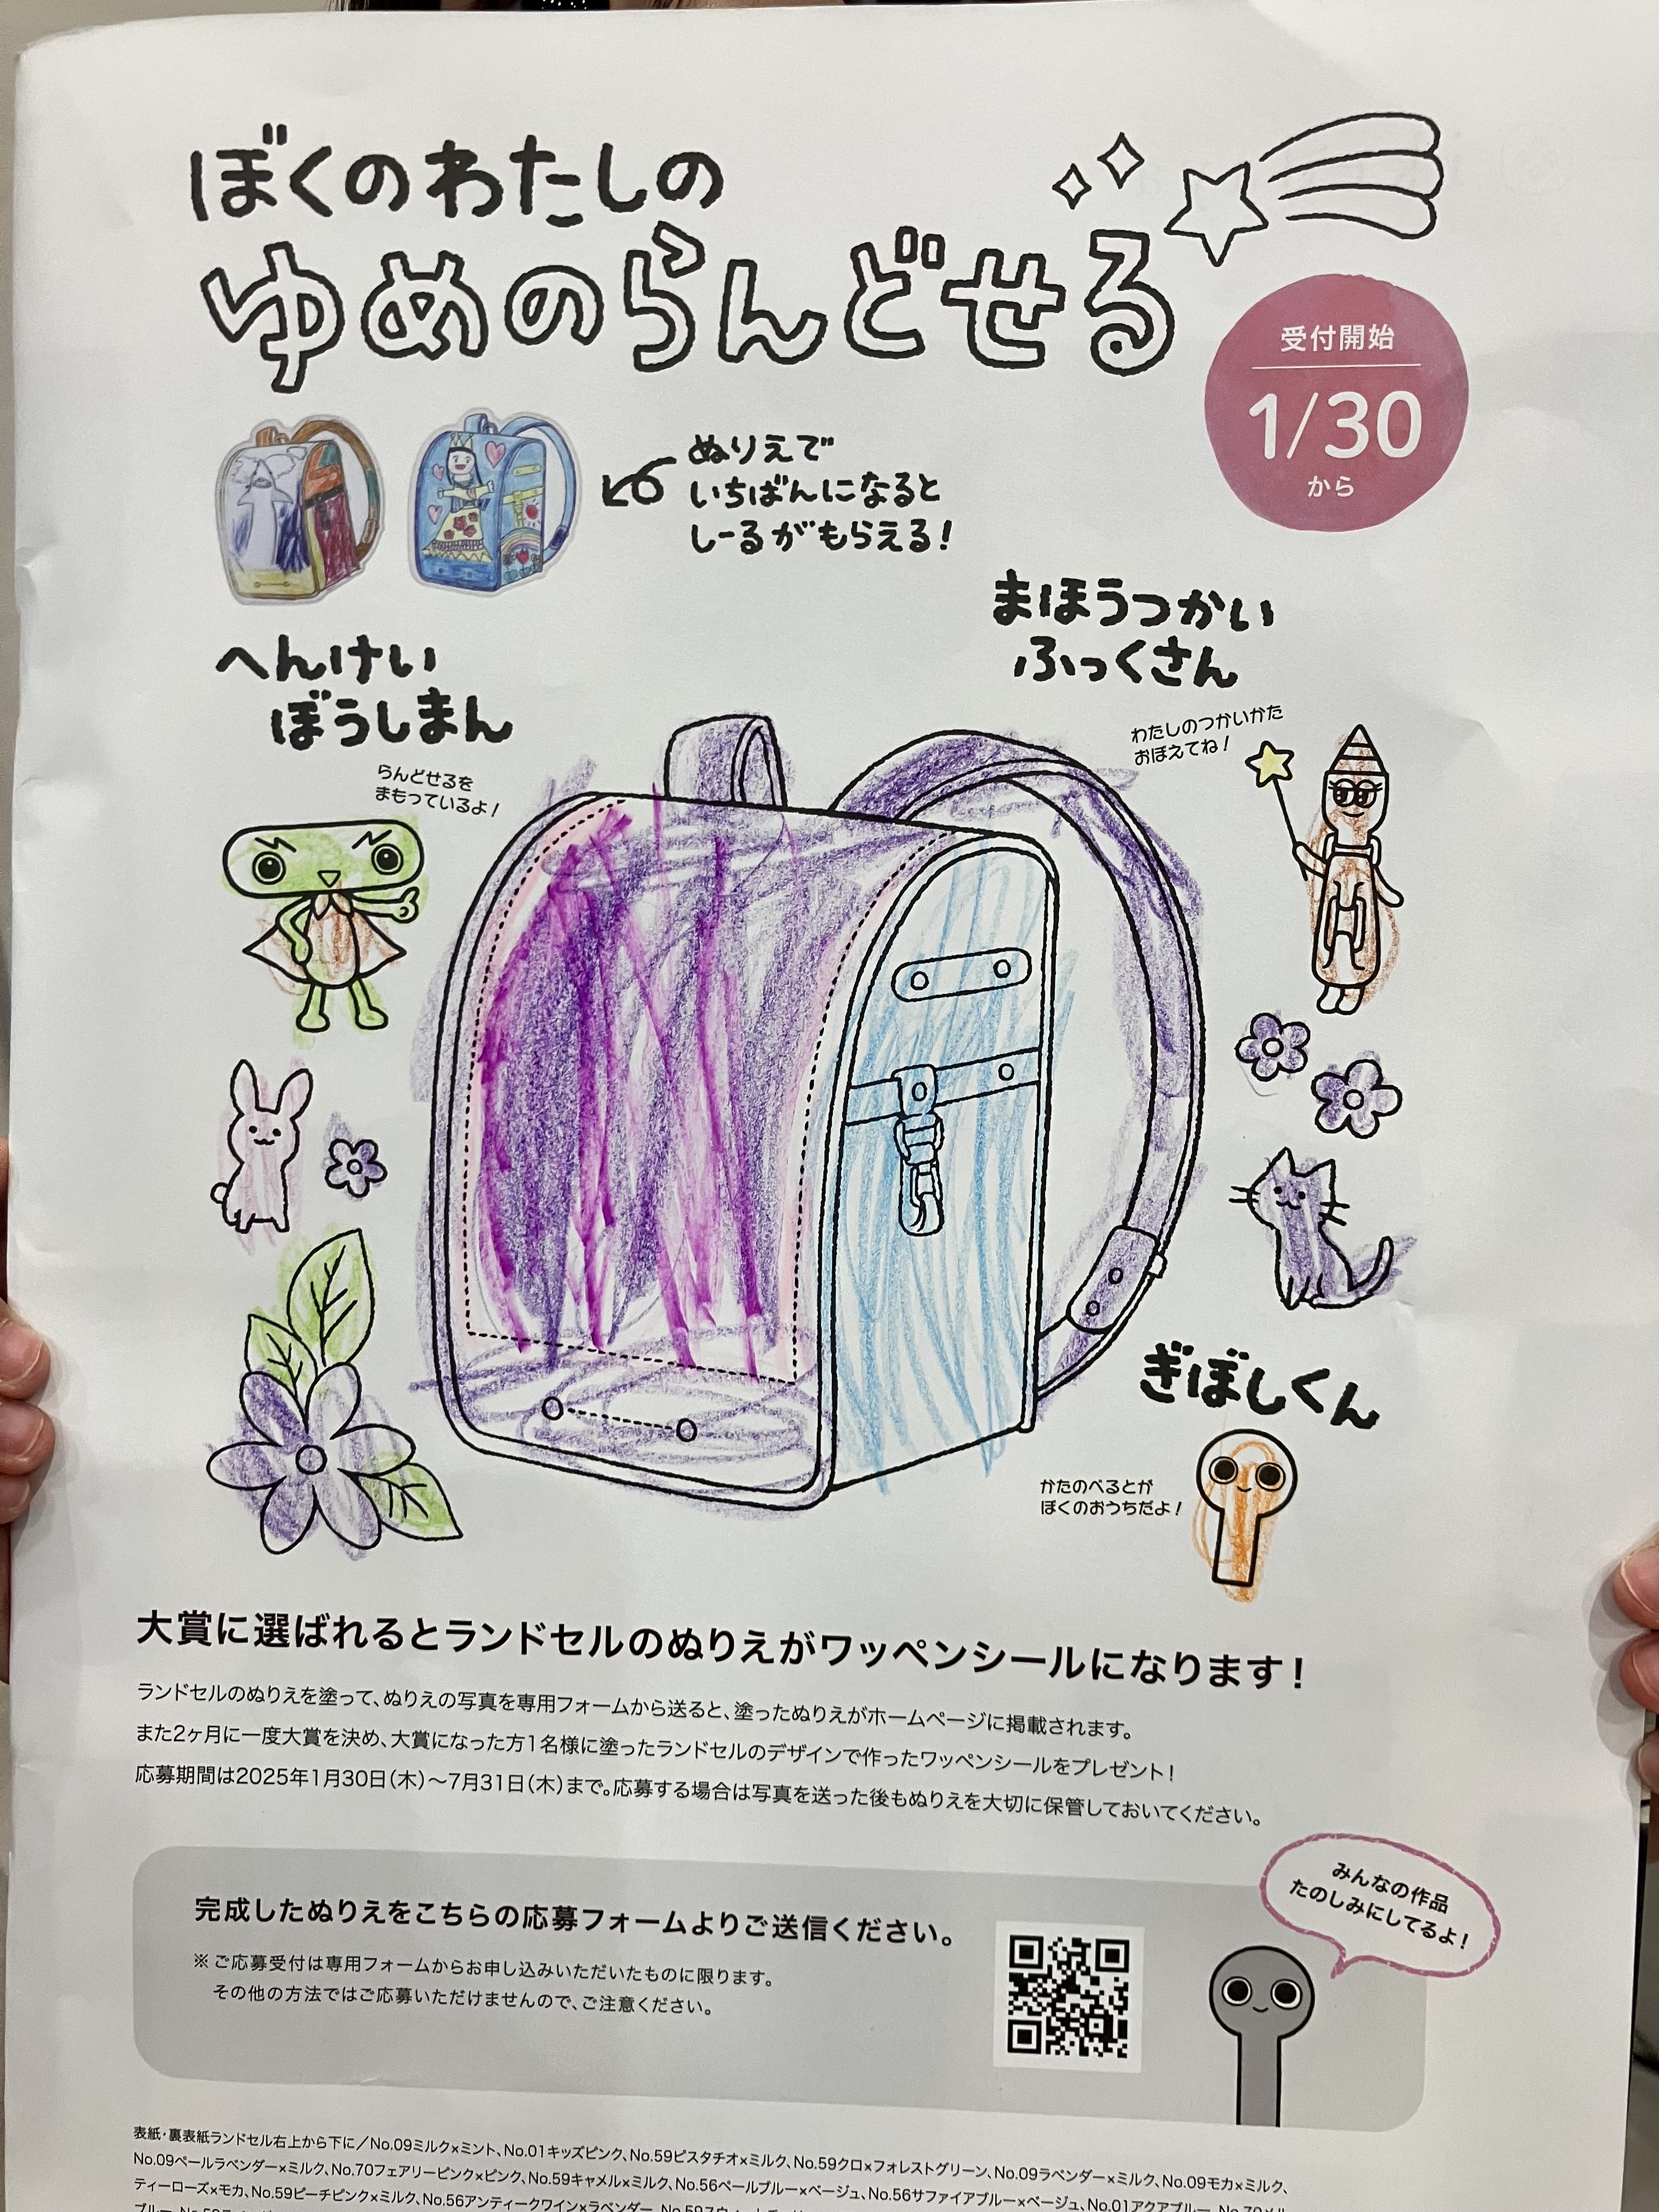 ぼくのわたしの
ゆめのらんどせる
受付開始
1/30
から
ぬりえで
いちばんになると
しーるがもらえる!
まほうつかい
ふっくさん
わたしのつかいかた
おぼえてね!
へんけい
ぼうしまん
らんどせるを
まもっているよ!
ぎぼしくん
かたのべるとが
ぼくのおうちだよ!
大賞に選ばれるとランドセルのぬりえがワッペンシールになります!
ランドセルのぬりえを塗って、ぬりえの写真を専用フォームから送ると、塗ったぬりえがホームページに掲載されます。
また2ヶ月に一度大賞を決め、大賞になった方1名様に塗ったランドセルのデザインで作ったワッペンシールをプレゼント!
応募期間は2025年1月30日(木)〜7月31日(木)まで。応募する場合は写真を送った後もぬりえを大切に保管しておいてください。
みんなの作品
たのしみにしてるよ!
完成したぬりえをこちらの応募フォームよりご送信ください。
※ご応募受付は専用フォームからお申し込みいただいたものに限ります。
その他の方法ではご応募いただけませんので、ご注意ください。
表紙・裏表紙ランドセル右上から下に/No.09ミルク×ミント、No.01キッズピンク、No.59ピスタチオ×ミルク、No.59クロ×フォレストグリーン、No.09ラベンダー×ミルク、No.09モカ×ミルク、
No.09ペールラベンダー×ミルク、No.70フェアリーピンク×ピンク、No.59キャメル×ミルク、No.56ペールブルー×ベージュ、No.56サファイアブルー×ベージュ、No.01アクアブルー、No.70メル
ティーローズ×モカ、No.59ピーチピンク×ミルク、No.56アンティークワイン×ラベンダー、